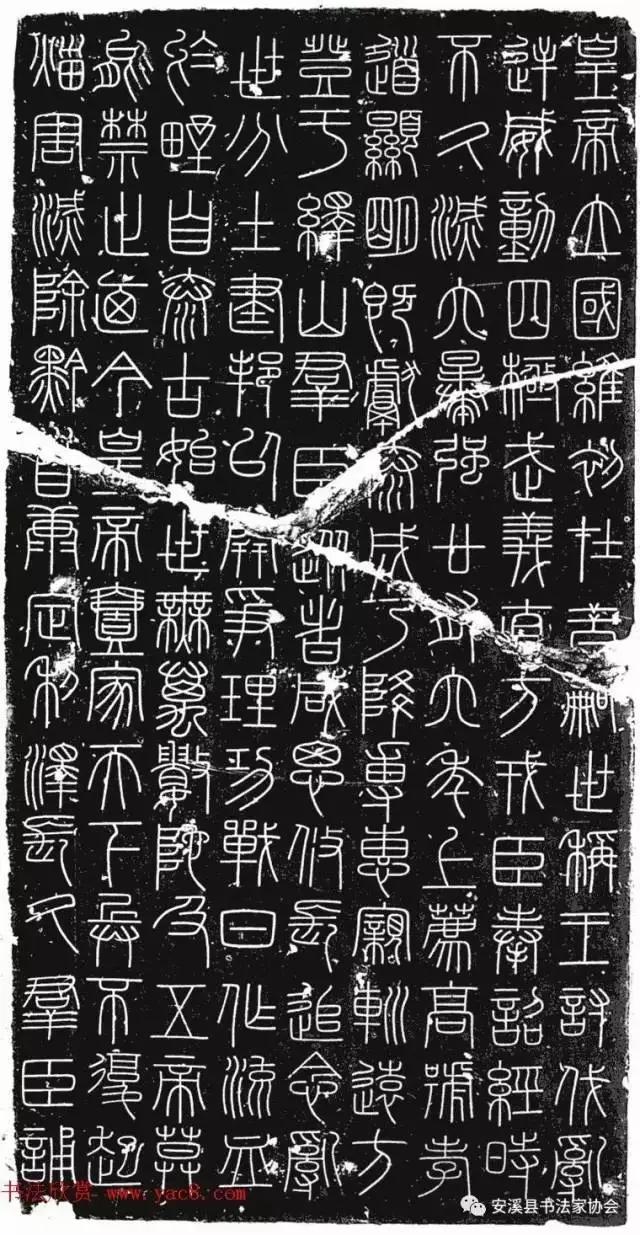 皇帝立國維初在昔嗣世稱王討伐亂
逆威動四極武義直方戎臣奉詔經時
不久滅六暴強廿有六年上薦高號孝
道顯明既獻泰成乃降尃惠親䡅遠方
登于繹山群臣從者咸思攸長追念亂
世分土建邦以開爭理功戰日作流血
於野自泰古始世無萬數陀及五帝莫
能禁止迺今皇帝壹家天下兵不復起
烖害滅除黔首康定利澤長久群臣誦
书法欣赏 www.yac8.com
安溪县书法家协会